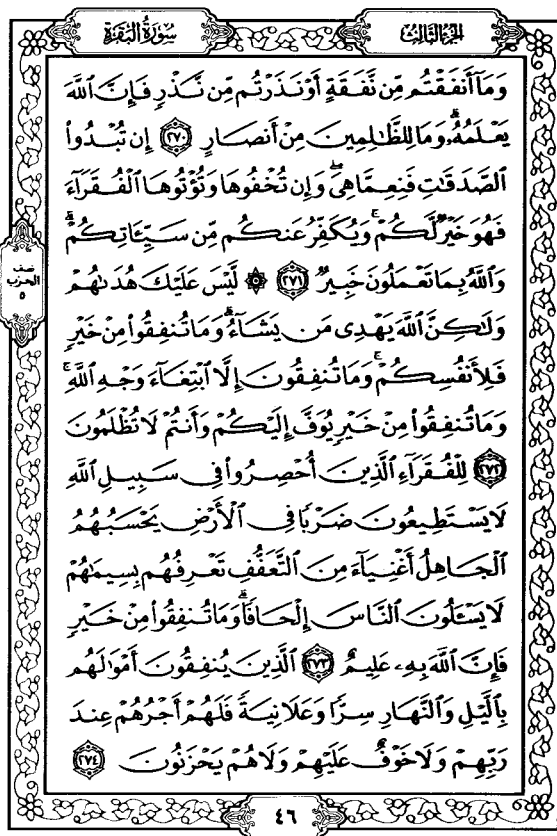 سُورَةُ البَقَرَةِ
الجزء الثالث
وَمَآ أَنفَقۡتُم مِّن نَّفَقَةٍ أَوۡ نَذَرۡتُم مِّن نَّذۡرٖ فَإِنَّ ٱللَّهَ
يَعۡلَمُهُۥۗ وَمَا لِلظَّٰلِمِينَ مِنۡ أَنصَارٍ ٢٧٠ إِن تُبۡدُواْ
ٱلصَّدَقَٰتِ فَنِعِمَّا هِيَۖ وَإِن تُخۡفُوهَا وَتُؤۡتُوهَا ٱلۡفُقَرَآءَ
فَهُوَ خَيۡرٞ لَّكُمۡۚ وَيُكَفِّرُ عَنكُم مِّن سَيِّـَٔاتِكُمۡۗ
وَٱللَّهُ بِمَا تَعۡمَلُونَ خَبِيرٞ ٢٧١ ۞ لَّيۡسَ عَلَيۡكَ هُدَىٰهُمۡ
وَلَٰكِنَّ ٱللَّهَ يَهۡدِي مَن يَشَآءُۗ وَمَا تُنفِقُواْ مِنۡ خَيۡرٖ
فَلِأَنفُسِكُمۡۚ وَمَا تُنفِقُونَ إِلَّا ٱبۡتِغَآءَ وَجۡهِ ٱللَّهِۚ
وَمَا تُنفِقُواْ مِنۡ خَيۡرٖ يُوَفَّ إِلَيۡكُمۡ وَأَنتُمۡ لَا تُظۡلَمُونَ
٢٧٢ لِلۡفُقَرَآءِ ٱلَّذِينَ أُحۡصِرُواْ فِي سَبِيلِ ٱللَّهِ
لَا يَسۡتَطِيعُونَ ضَرۡبٗا فِي ٱلۡأَرۡضِ يَحۡسَبُهُمُ
ٱلۡجَاهِلُ أَغۡنِيَآءَ مِنَ ٱلتَّعَفُّفِ تَعۡرِفُهُم بِسِيمَٰهُمۡ
لَا يَسۡـَٔلُونَ ٱلنَّاسَ إِلۡحَافٗاۗ وَمَا تُنفِقُواْ مِنۡ خَيۡرٖ
فَإِنَّ ٱللَّهَ بِهِۦ عَلِيمٌ ٢٧٣ ٱلَّذِينَ يُنفِقُونَ أَمۡوَٰلَهُم
بِٱلَّيۡلِ وَٱلنَّهَارِ سِرّٗا وَعَلَانِيَةٗ فَلَهُمۡ أَجۡرُهُمۡ عِندَ
رَبِّهِمۡ وَلَا خَوۡفٌ عَلَيۡهِمۡ وَلَا هُمۡ يَحۡزَنُونَ ٢٧٤
نصف
الحزب
٥
٤٦